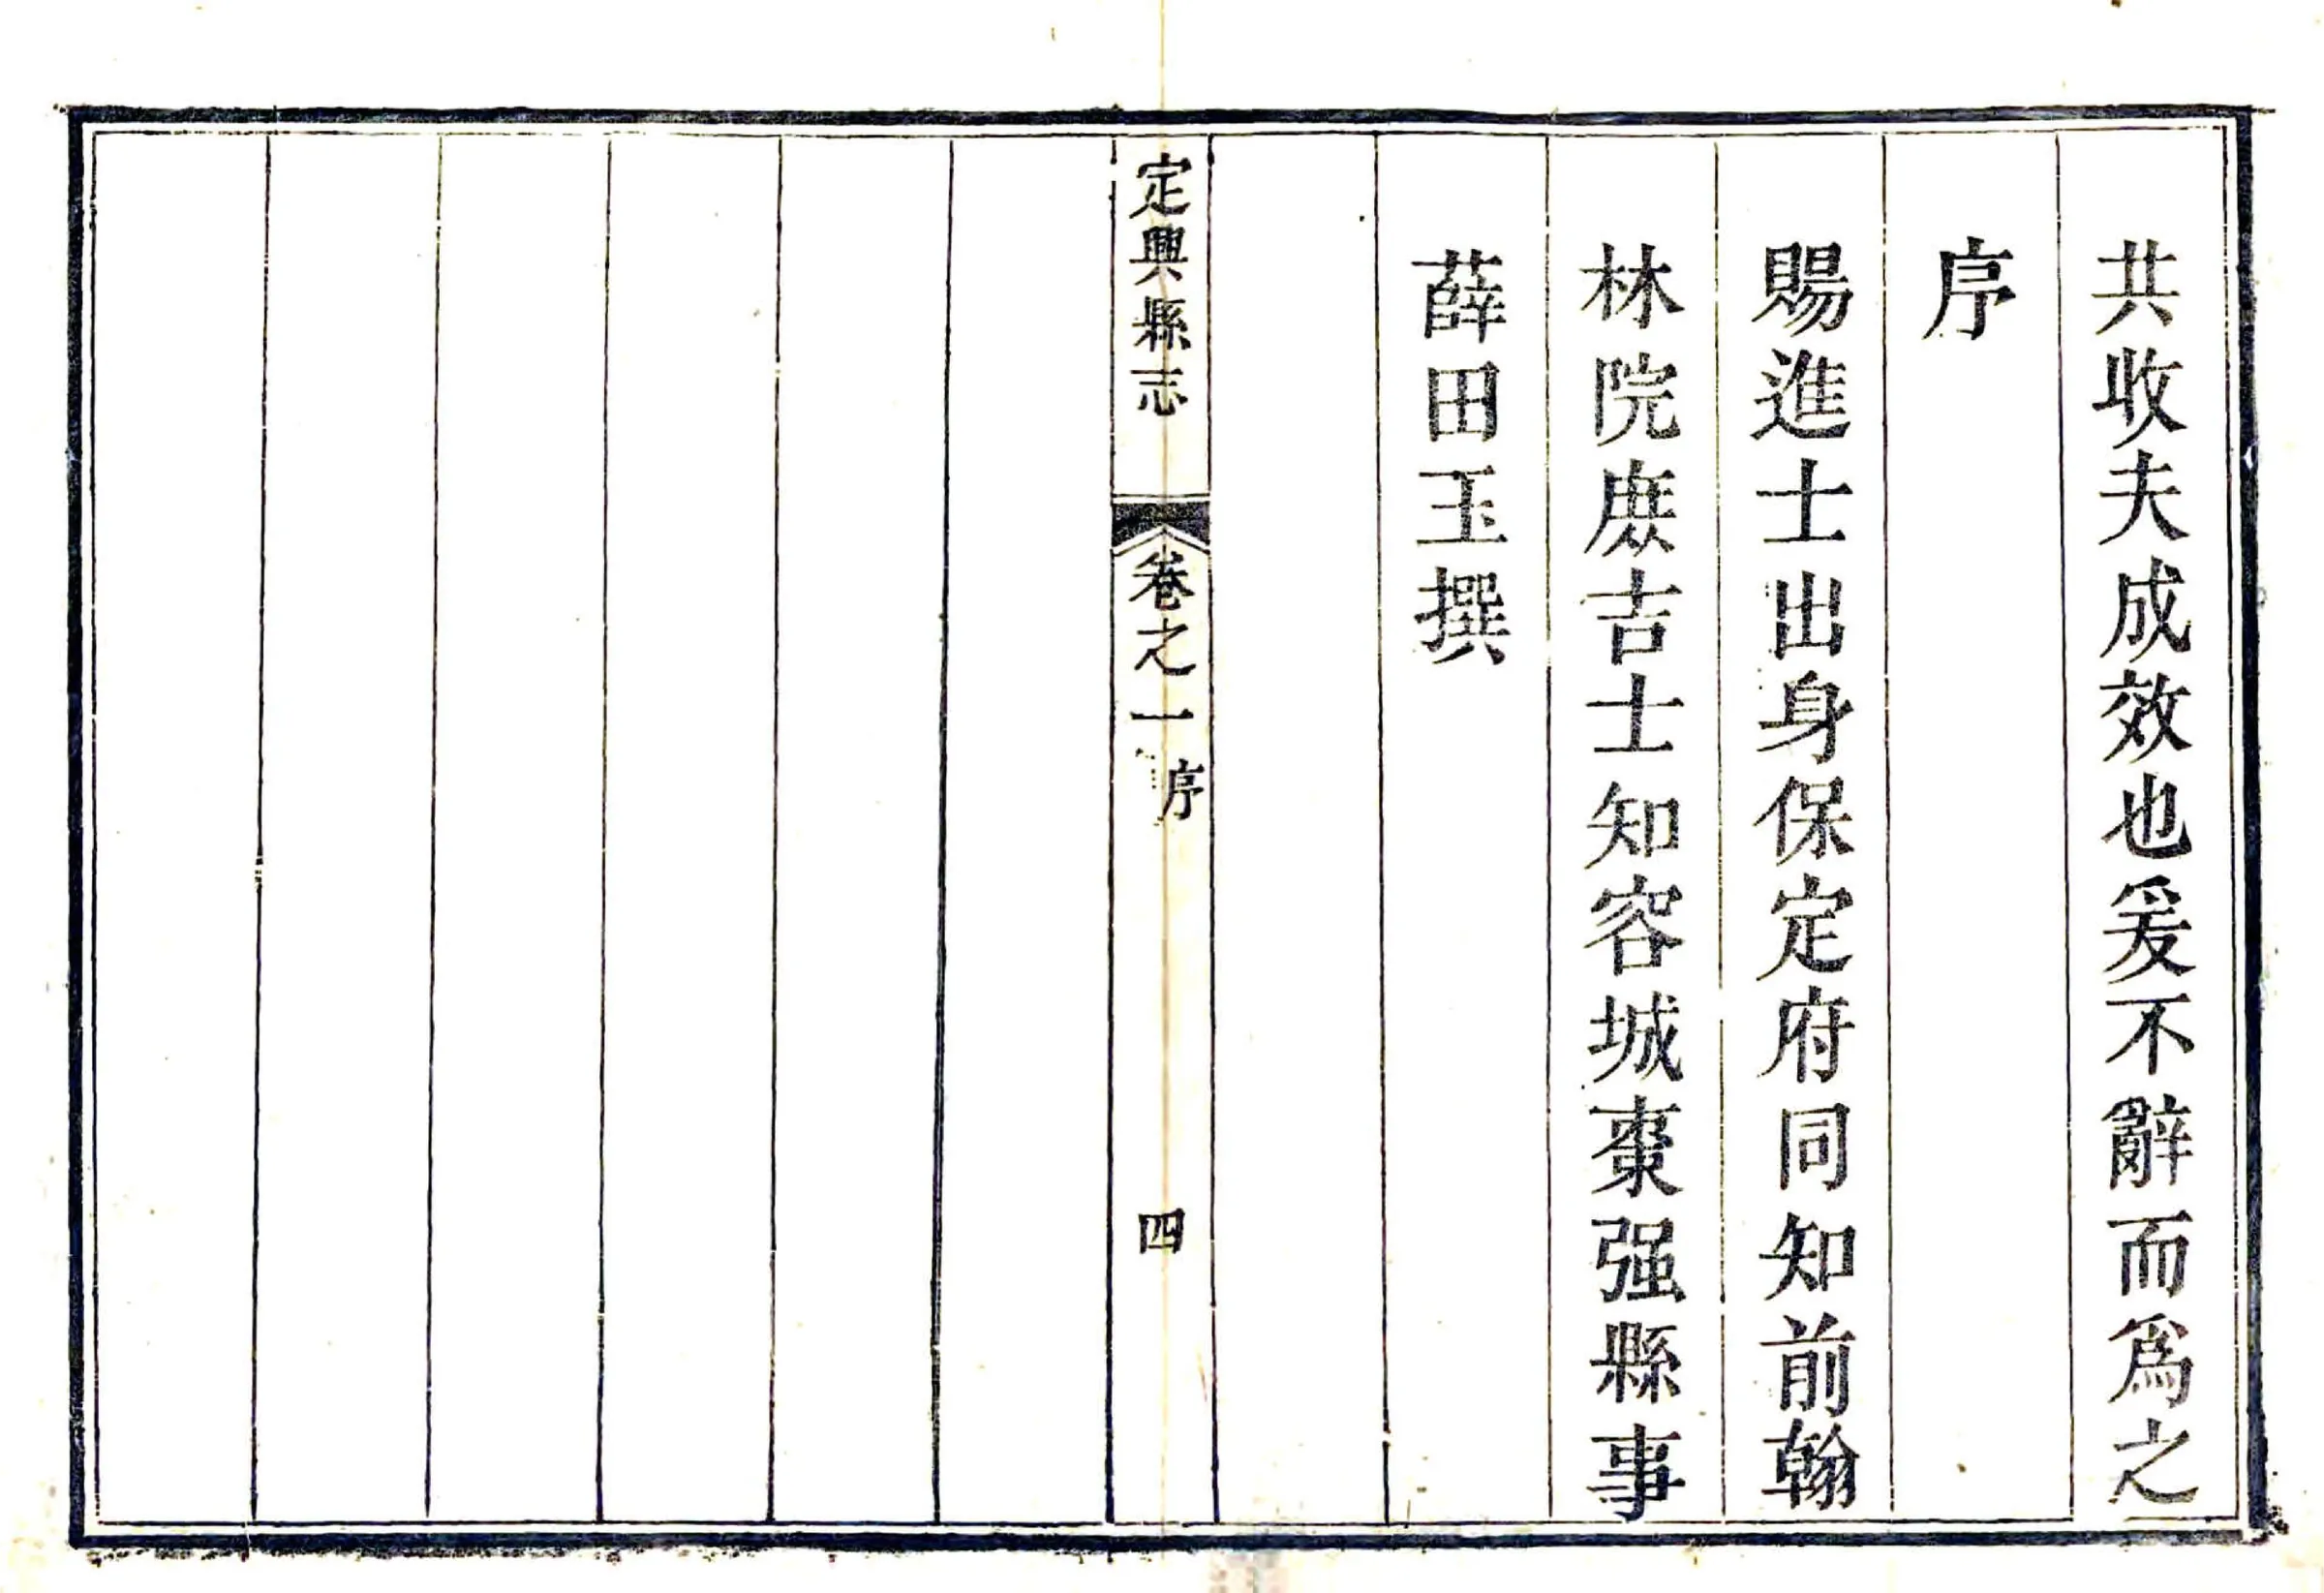 共收夫成效也爰不辭而爲之
序
賜進士出身保定府同知前翰
林院庶吉士知容城棗强縣事
薛田玉撰
定興縣志
卷之一
序
四